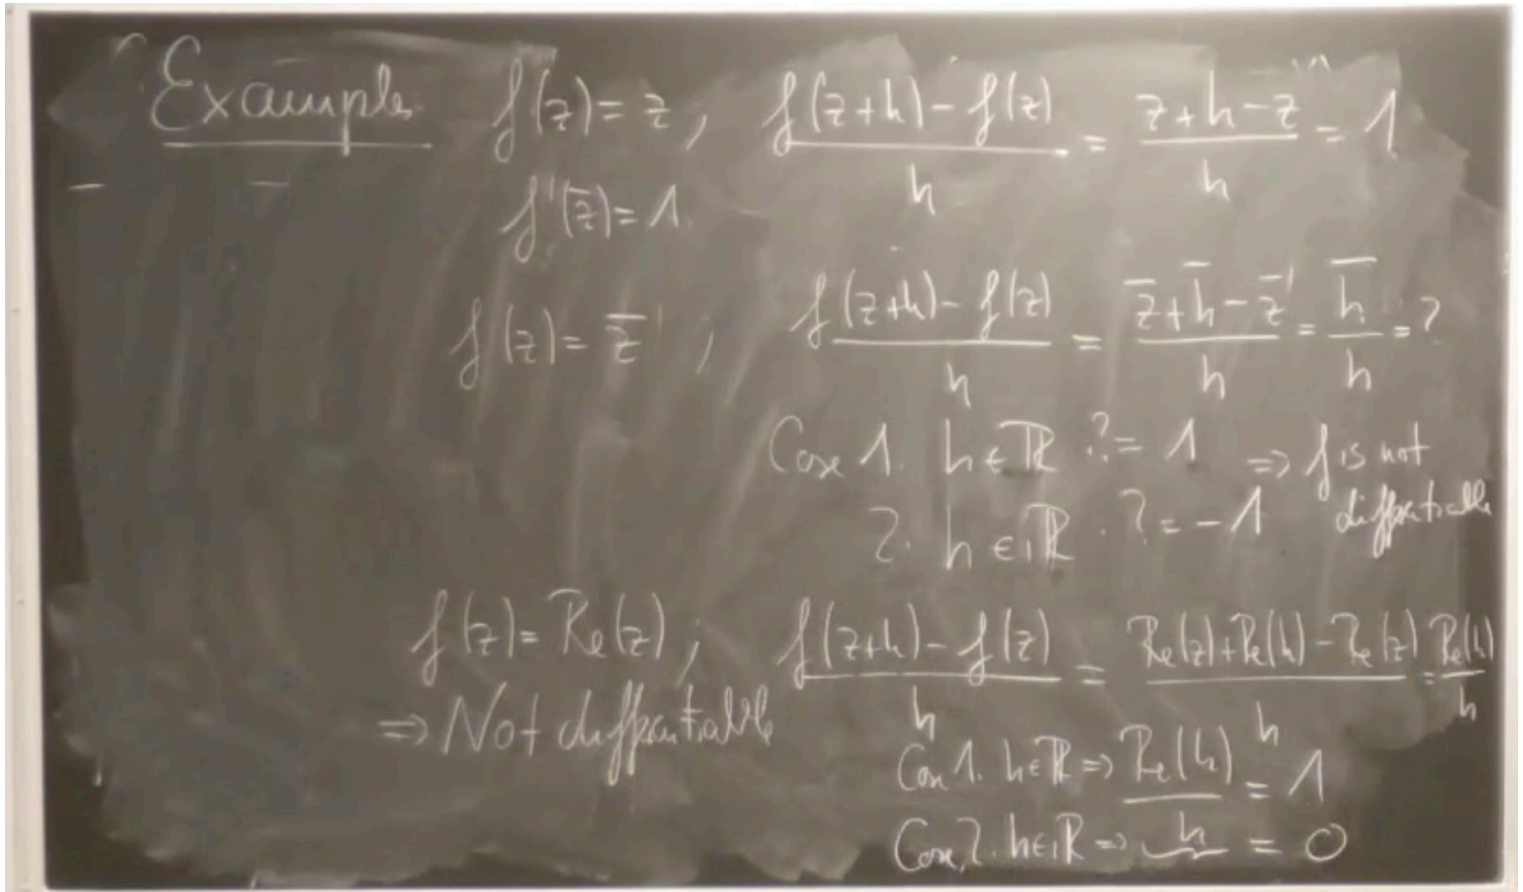 Example f(z) = z, (f(z+h) - f(z))/h = (z+h-z)/h = 1
f'(z) = 1
f(z) = z̅, (f(z+h) - f(z))/h = (z̅+h̅-z̅)/h = h̅/h = ?
Case 1. h∈ℝ ? = 1 ⇒ f is not
2. h∈iℝ : ? = -1 differentiable
f(z) = Re(z), (f(z+h) - f(z))/h = (Re(z)+Re(h)-Re(z))/h = Re(h)/h
⇒ Not differentiable
Case 1. h∈ℝ ⇒ Re(h)/h = 1
Case 2. h∈iℝ ⇒ = 0